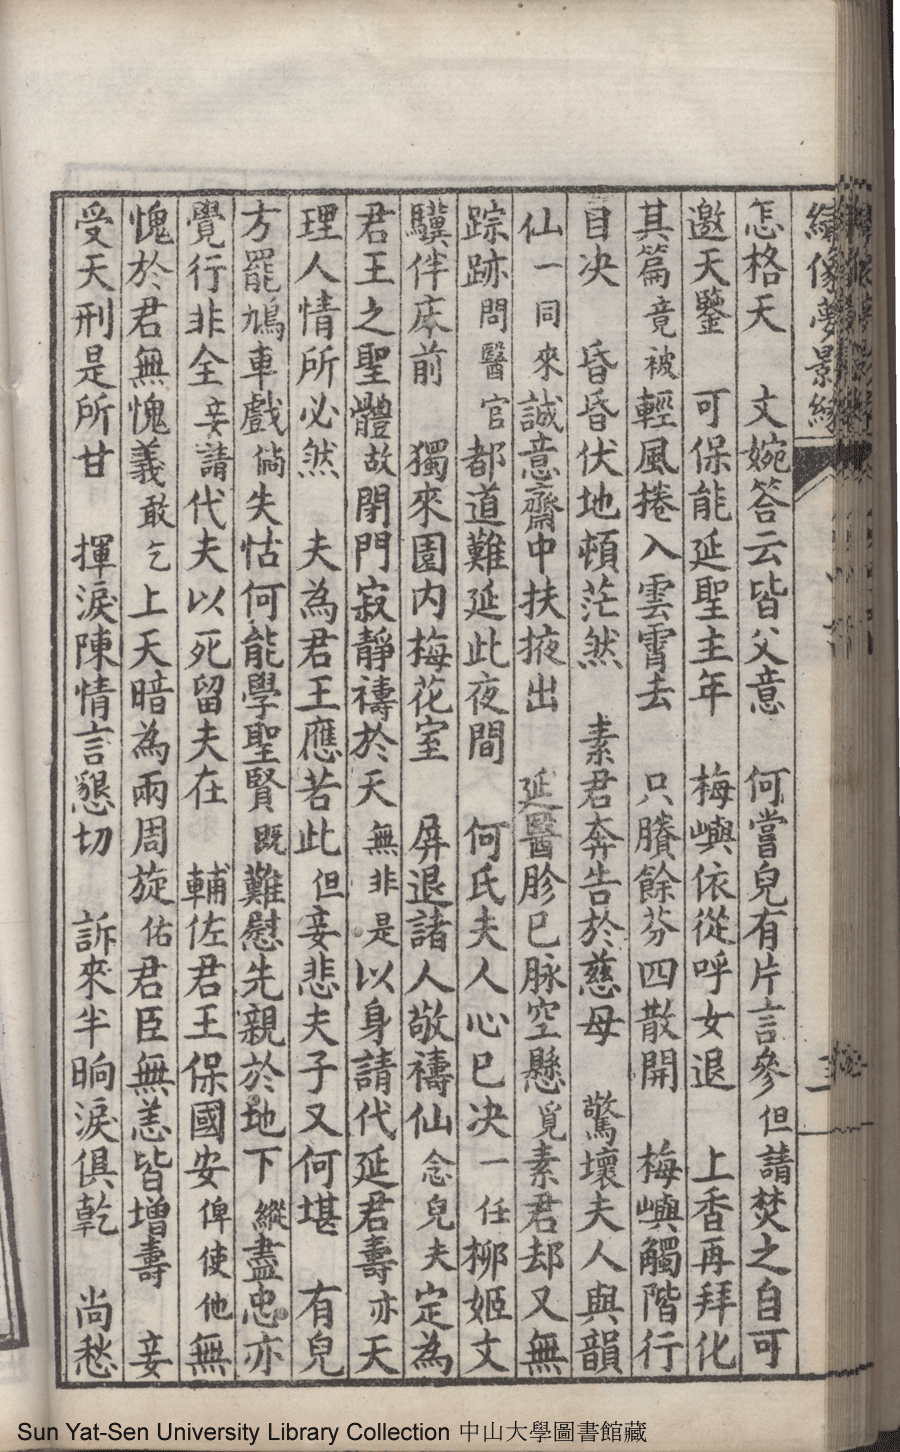 繪像夢影緣
怎格天　文婉答云皆父意　何嘗兒有片言參但請焚之自可
邀天鑒　可保能延聖主年　梅嶼依從呼女退　上香再拜化
其篇竟被輕風捲入雲霄去　只賸餘芬四散開　梅嶼觸階行
目決　昏昏伏地頓茫然　素君奔告於慈母　驚壞夫人與韻
仙一同來誠意齋中扶掖出　延醫胗已脉空懸覓素君却又無
踪跡問醫官都道難延此夜間　何氏夫人心已决一任柳姬文
驥伴床前　獨來園内梅花室　屏退諸人敬禱仙念兒夫定為
君王之聖體故閉門寂靜禱於天無非是以身請代延君壽亦天
理人情所必然　夫為君王應若此但妾悲夫子又何堪　有兒
方罷鳩車戲倘失怙何能學聖賢既難慰先親於地下縱盡忠亦
覺行非全妾請代夫以死留夫在　輔佐君王保國安俾使他無
愧於君無愧義敢乞上天暗為兩周旋佑君臣無恙皆增壽　妾
受天刑是所甘　揮淚陳情言懇切　訴來半晌淚俱乾　尚愁
Sun Yat-Sen University Library Collection 中山大學圖書館藏